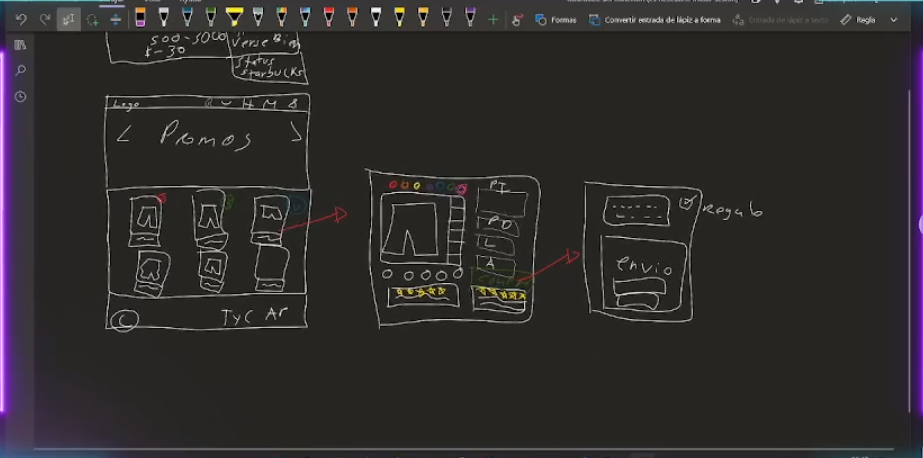 Formas
Convertir entrada de lápiz a forma
Entrada de lápiz a texto
Regla
500-5000
$-30
Verse Bien
Status
Starbucks
Logo
H M
< Promos >
TyC
C
PI
PD
L
A
Regalo
envio